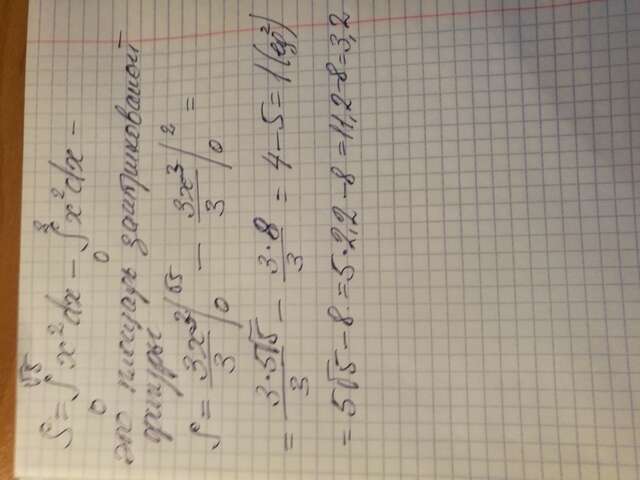 S = ∫₀^√5 x² dx − ∫₀² x² dx −
это площадь заштрихованой
фигуры
S = 3x³/3 |₀^√5 − 3x³/3 |₀² =
= 3·5√5/3 − 3·8/3 = 4 − 5 = 1 (ед²)
= 5√5 − 8 = 5·2,2 − 8 = 11,2 − 8 = 3,2